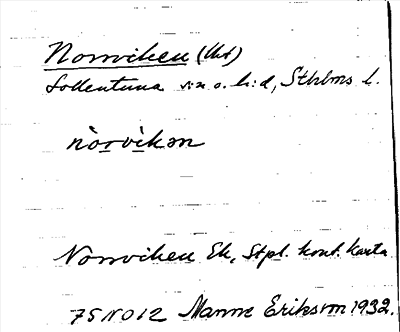 Norrviken (Ort)
Sollentuna sn o. h:d, Sthlms l.
nòrvìkən
Norrviken Ek, Stpl. kont. karta.
75 NO 12 Manne Eriksson 1932.